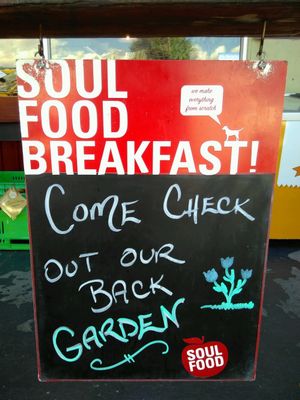 SOUL
FOOD
BREAKFAST!
we make
everything
from scratch
COME CHECK
OUT OUR
BACK
GARDEN
SOUL
FOOD